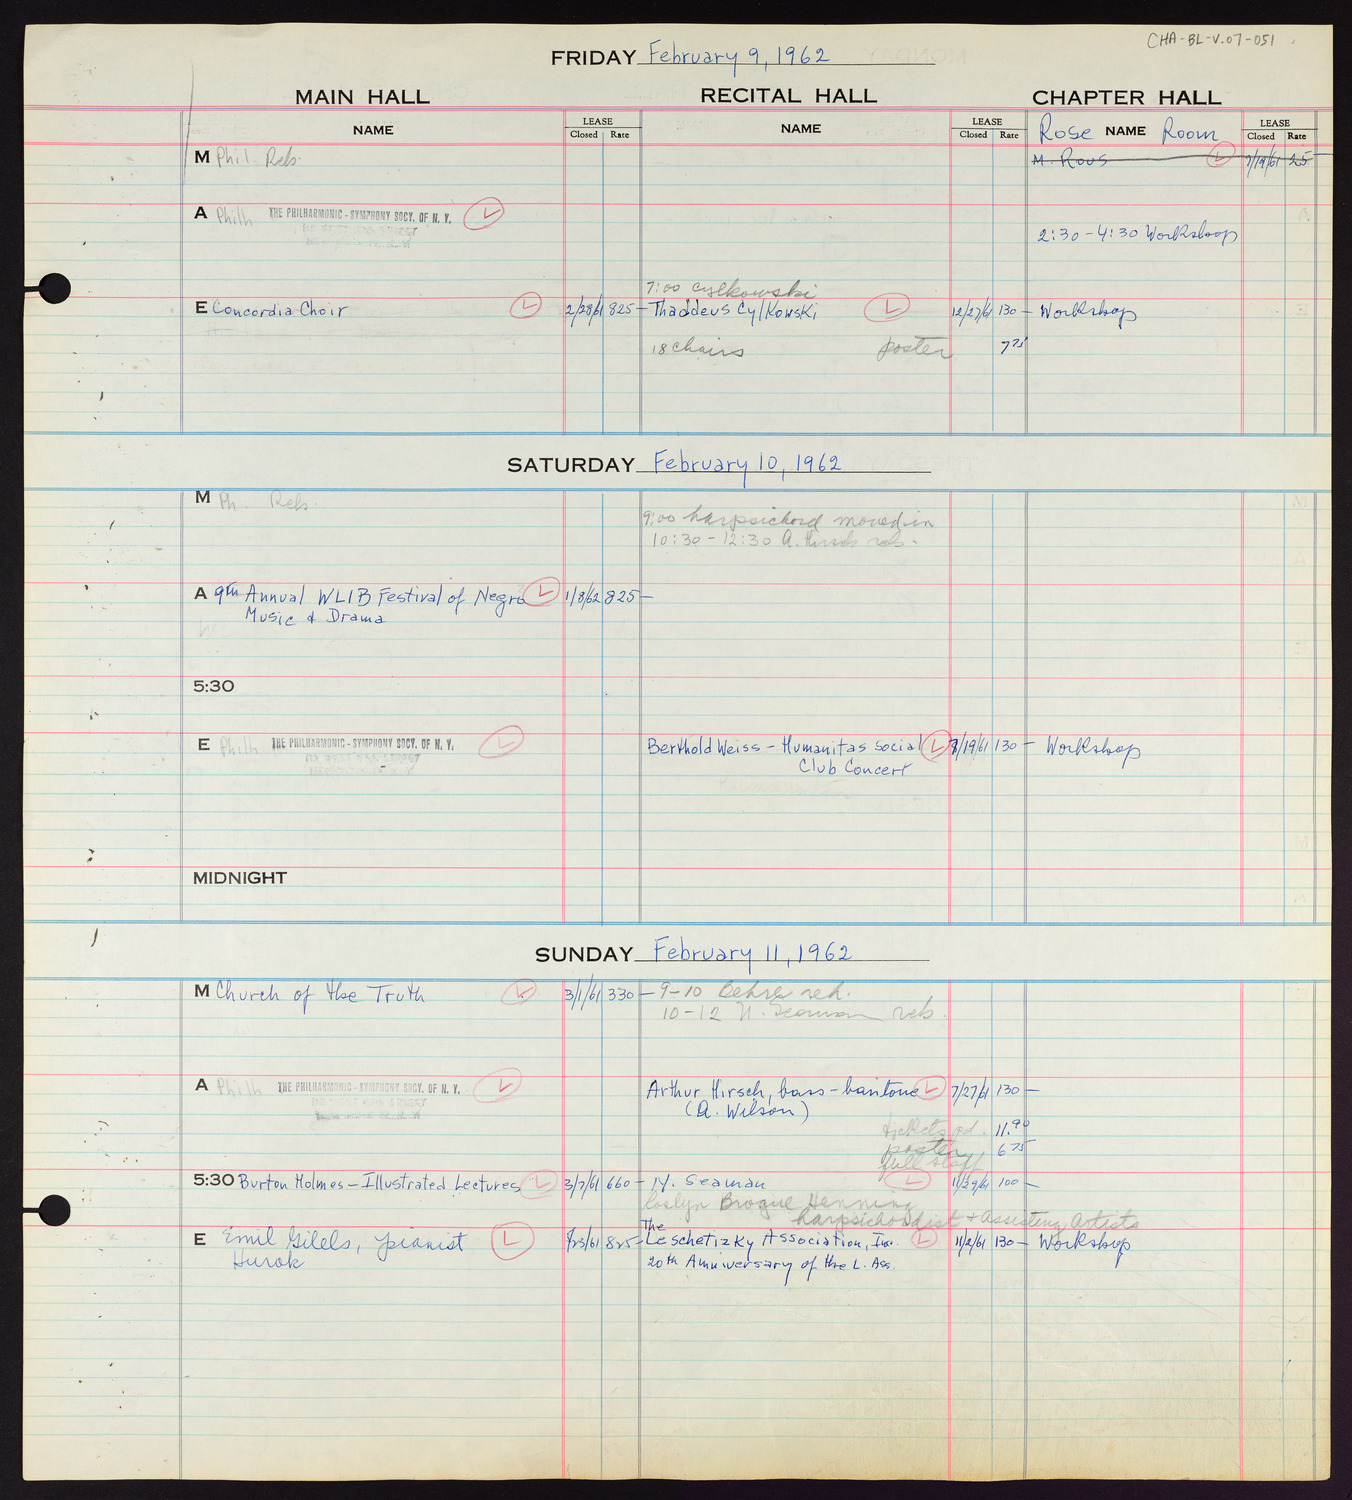 CHA-BL-V.07-051
FRIDAY February 9, 1962
MAIN HALL RECITAL HALL CHAPTER HALL
NAME LEASE Closed Rate NAME LEASE Closed Rate Rose NAME Room LEASE Closed Rate
M Phil. Reh. M. Rous 7/19/61 25 —
A Philh THE PHILHARMONIC-SYMPHONY SOCY. OF N. Y.
2:30 - 4:30 Workshop
7:00 Cylkowski
E Concordia Choir 2/28/61 825 — Thaddeus Cylkowski 12/27/61 130 — Workshop
18 chairs poster 7 75
SATURDAY February 10, 1962
M Ph. Reh.
9:00 harpsichord moved in
10:30 - 12:30 A. Hirsch reh.
A 9th Annual WLIB Festival of Negro 1/8/62 825 —
Music & Drama
5:30
E Philh THE PHILHARMONIC-SYMPHONY SOCY. OF N. Y. Berthold Weiss - Humanitas Social /19/61 130 — Workshop
Club Concert
MIDNIGHT
SUNDAY February 11, 1962
M Church of the Truth 3/1/61 330 — 9-10 Behre reh.
10-12 N. Seaman reh.
A Philh THE PHILHARMONIC-SYMPHONY SOCY. OF N. Y. Arthur Hirsch, bass-baritone 7/27/61 130 —
(A. Wilson)
tickets pd. 11.90
poster 6 75
full staff
5:30 Burton Holmes - Illustrated Lectures 3/7/61 660 — N. Seaman 11/29/61 100 —
Roslyn Brogue Henning
harpsichordist + Assisting Artists
The
E Emil Gilels, pianist /23/61 825 — Leschetizky Association, Inc. 11/2/61 130 — Workshop
Hurok 20th Anniversary of the L. Ass.